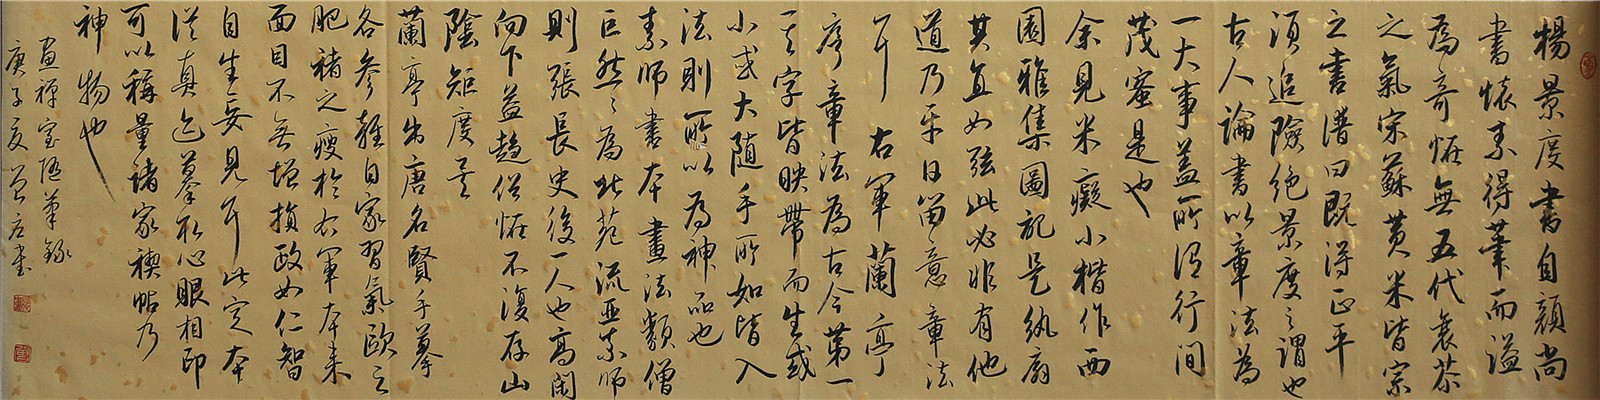 楊景度書自顏尚
書懷素得筆而溢
為奇怪無五代衰苶
之氣宋蘇黃米皆宗
之書譜曰既得正平
須追險絕景度之謂也
古人論書以章法為
一大事蓋所謂行間
茂蜜是也
余見米癡小楷作西
園雅集圖記是紈扇
其直如弦此必非有他
道乃平日留意章法
耳 右軍蘭亭
序章法為古今第一
其字皆映帶而生或
小或大随手所如皆入
法則所以為神品也
素師書本畫法類僧
巨然〻為北苑流亞素師
則張長史後一人也高閑
向下益趨俗怪不復存山
陰矩度矣
蘭亭出唐名賢手摹
各參雜自家習氣歐之
肥褚之瘦於右軍本來
面目不無增損政如仁智
自生妄見耳此定本
從真迹摹取心眼相印
可以稱量諸家禊帖乃
神物也
畫禪室随筆錄
庚子夏書